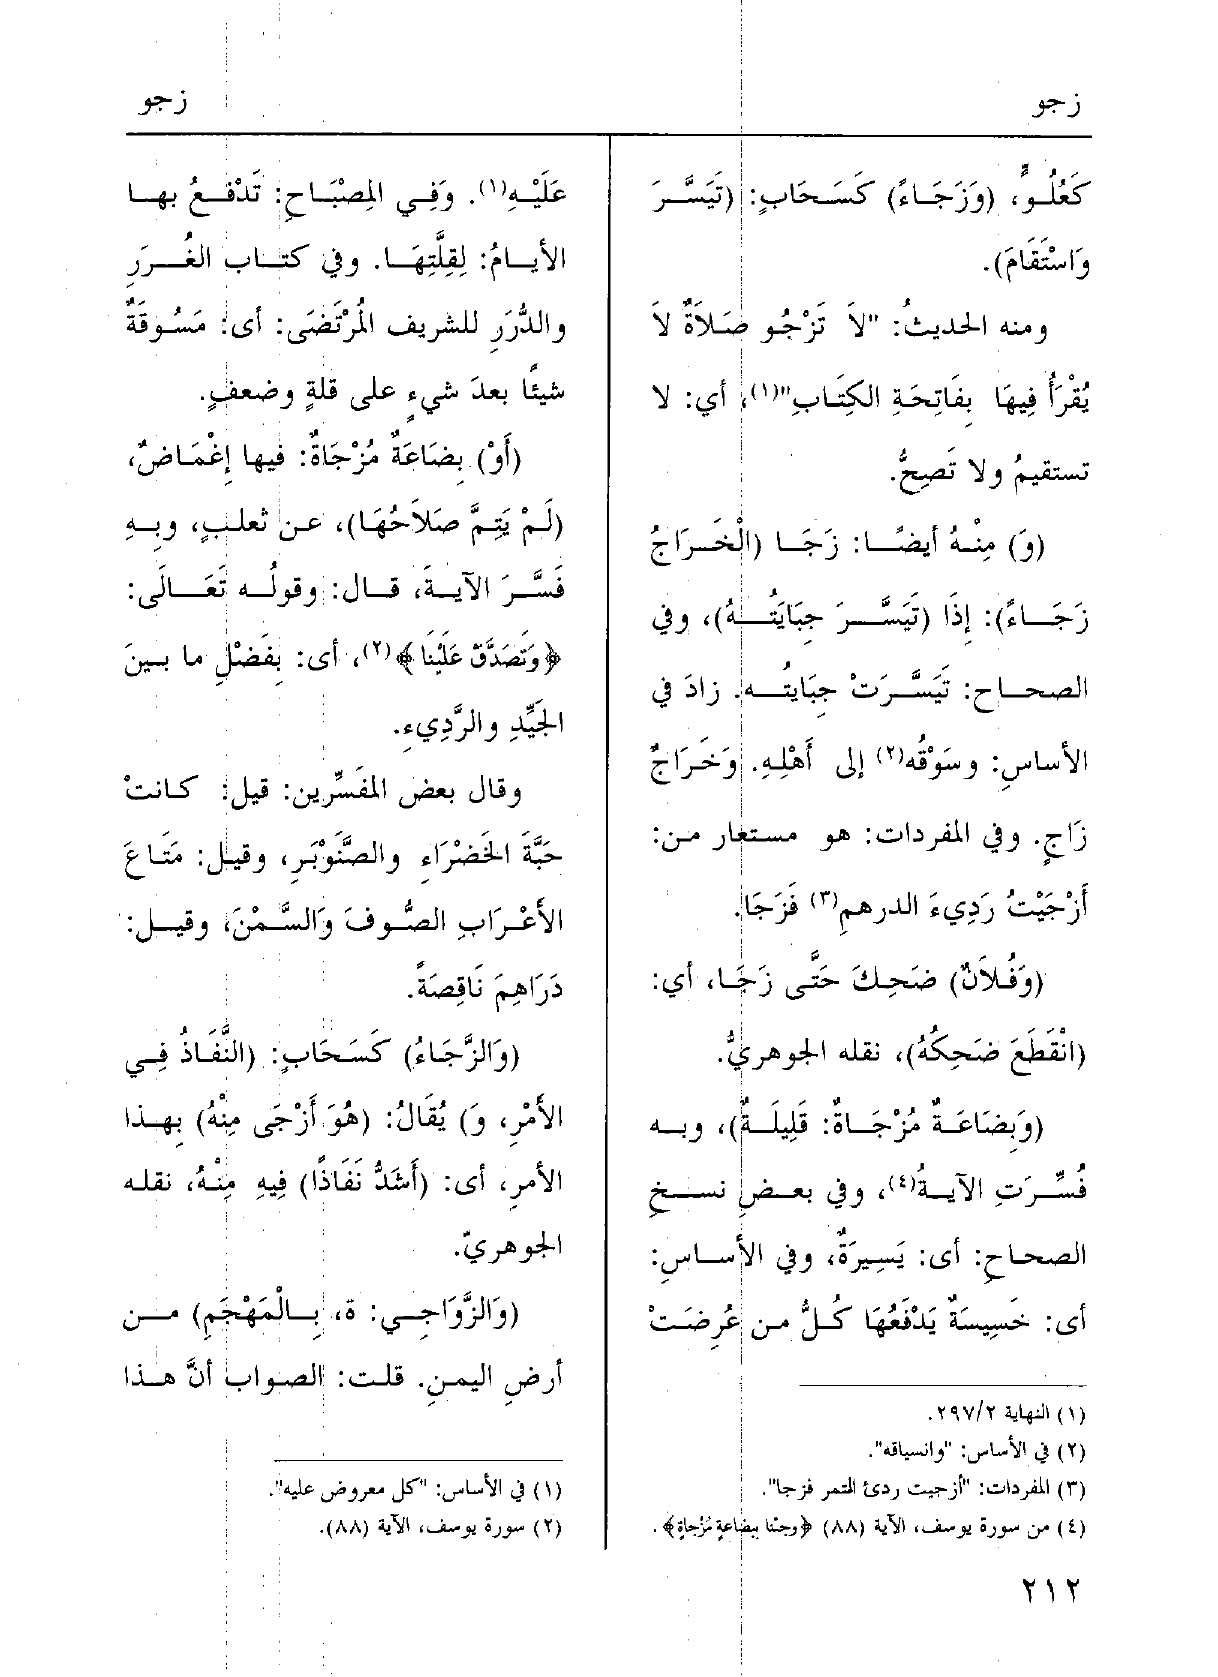 زجو
زجو
كَعُلُوٍّ، (وَزَجَاءً) كَسَحَابٍ: (تَيَسَّرَ
وَاسْتَقَامَ).
ومنه الحديثُ: "لاَ تَزْجُو صَلاَةٌ لاَ
يُقْرَأُ فِيهَا بِفَاتِحَةِ الكِتَابِ"(١)، أي: لا
تستقيمُ ولا تَصِحُّ.
(وَ) مِنْهُ أيضًا: زَجَا (الْخَرَاجُ
زَجَاءً): إذَا (تَيَسَّرَ جِبَايَتُهُ)، وفي
الصحاح: تَيَسَّرَتْ جِبَايتُه. زادَ في
الأساس: وسَوْقُه(٢) إلى أَهْلِهِ. وَخَرَاجٌ
زَاجٍ. وفي المفردات: هو مستعار من:
أَزْجَيْتُ رَدِيءَ الدرهمِ(٣) فَزَجَا.
(وَفُلاَنٌ) ضَحِكَ حَتَّى زَجَا، أي:
(انْقَطَعَ ضَحِكُهُ)، نقله الجوهريُّ.
(وَبِضَاعَةٌ مُزْجَاةٌ: قَلِيلَةٌ)، وبه
فُسِّرَتِ الآيةُ(٤)، وفي بعضِ نسخِ
الصحاحِ: أى: يَسِيرَةٌ، وفي الأساسِ:
أى: خَسِيسَةٌ يَدْفَعُهَا كُلُّ من عُرِضَتْ
(١) النهاية ٢٩٧/٢.
(٢) في الأساس: "وانسياقه".
(٣) المفردات: "أزجيت ردئ التمر فزجا".
(٤) من سورة يوسف، الآية (٨٨) ﴿وجئنا ببضاعةٍ مُزْجاةٍ﴾.
عَلَيْهِ(١). وَفِي المِصْبَاحِ: تَدْفَعُ بها
الأيامُ: لِقِلَّتِهَا. وفي كتاب الغُرَرِ
والدُّرَرِ للشريف المُرْتَضَى: أى: مَسُوقَةٌ
شيئًا بعدَ شيءٍ على قلةٍ وضعفٍ.
(أَوْ) بِضَاعَةٌ مُزْجَاةٌ: فيها إِغْمَاضٌ،
(لَمْ يَتِمَّ صَلاَحُهَا)، عن ثعلبٍ، وبِهِ
فَسَّرَ الآيةَ، قال: وقولُه تَعَالَى:
﴿وَتَصَدَّقْ عَلَيْنَا﴾(٢)، أى: بِفَضْلِ ما بينَ
الجَيِّدِ والرَّدِيءِ.
وقال بعض المفَسِّرين: قيل: كانتْ
حَبَّةَ الخَضْرَاءِ والصَّنَوْبَرِ، وقيل: مَتَاعَ
الأَعْرَابِ الصُّوفَ وَالسَّمْنَ، وقيل:
دَرَاهِمَ نَاقِصَةً.
(وَالزَّجَاءُ) كَسَحَابٍ: (النَّفَاذُ فِي
الأَمْرِ، وَ) يُقَالُ: (هُوَ أَزْجَى مِنْهُ) بِهذا
الأمرِ، أى: (أَشَدُّ نَفَاذًا) فِيهِ مِنْهُ، نقله
الجوهريّ.
(وَالزَّوَاجِي: ة، بِالْمَهْجَمِ) من
أرضِ اليمنِ. قلت: الصواب أنَّ هذا
(١) في الأساس: "كل معروض عليه".
(٢) سورة يوسف، الآية (٨٨).
٢١٢